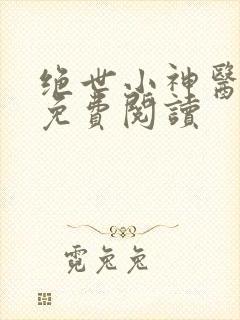 绝世小神醫
免費閱讀
霓兔兔